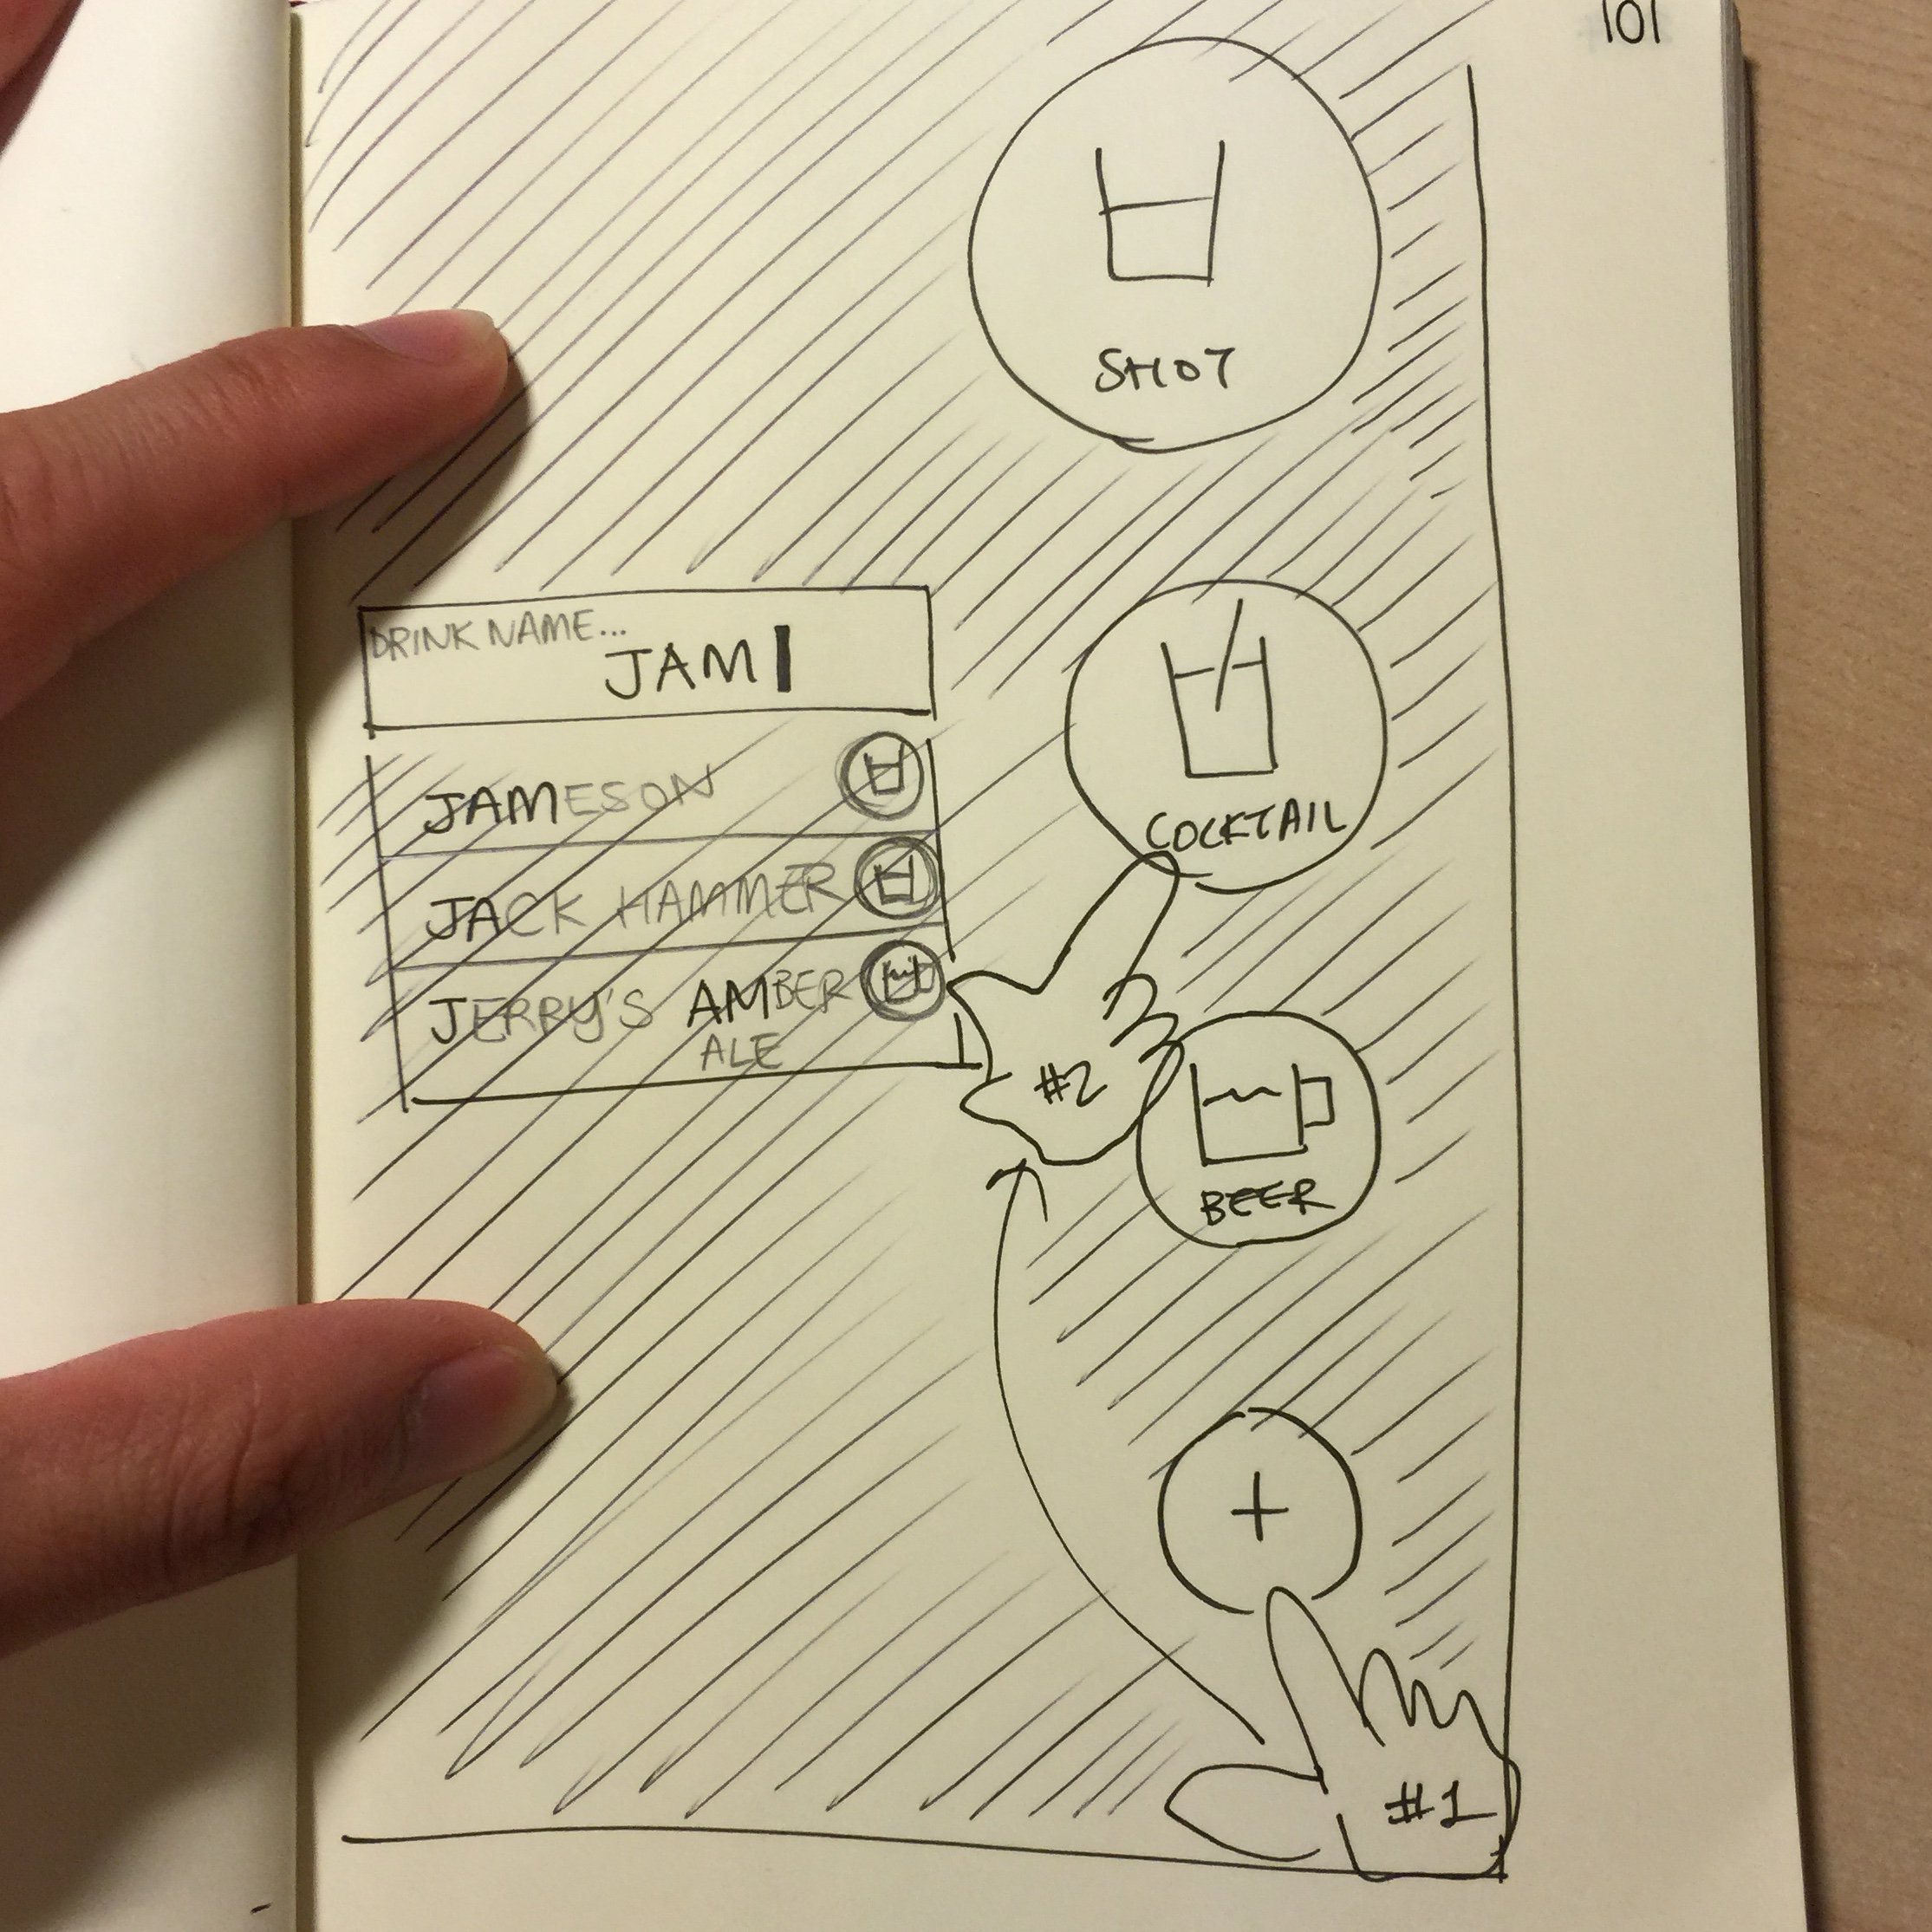 101
SHOT
DRINK NAME...
JAM
JAMESON
JACK HAMMER
JERRY'S AMBER
ALE
COCKTAIL
#2
BEER
+
#1